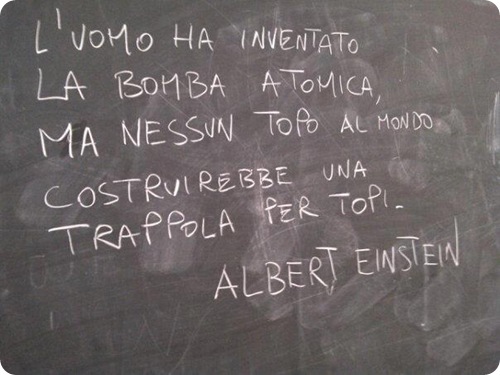 L'UOMO HA INVENTATO
LA BOMBA ATOMICA,
MA NESSUN TOPO AL MONDO
COSTRUIREBBE UNA
TRAPPOLA PER TOPI-
ALBERT EINSTEIN